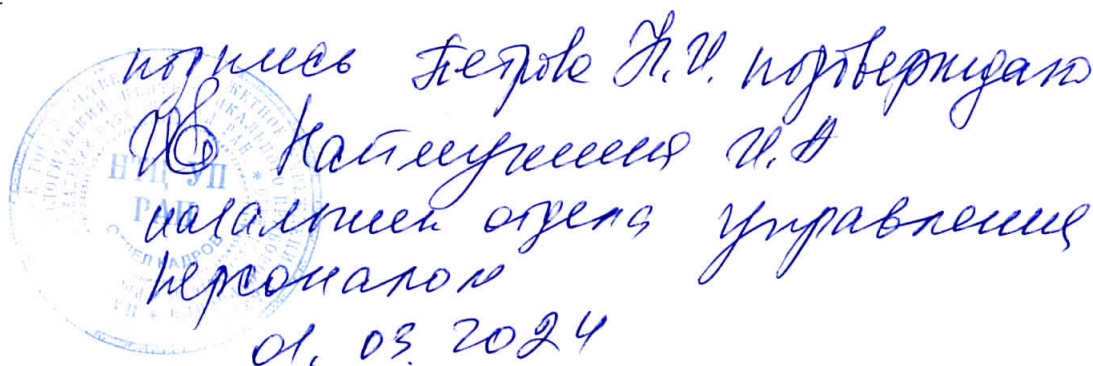 подпись Петрова Н.И. подтверждаю
Наймушина И.А
начальник отдела управления
персоналом
01.03.2024
НТЦ УП
РАН
ОТДЕЛ КАДРОВ